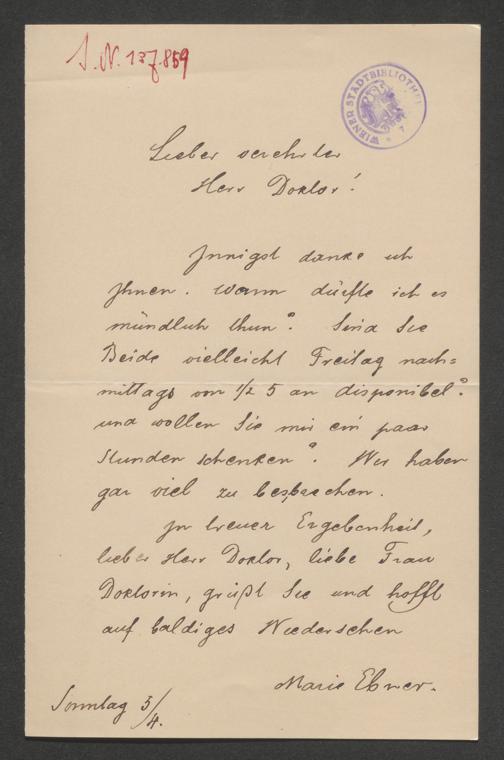 J. N. 137.859
WIENER STADTBIBLIOTHEK
Lieber verehrter
Herr Doktor!
Innigst danke ich
Ihnen. Wann dürfte ich es
mündlich thun? Sind Sie
Beide vielleicht Freitag nach=
mittags von 1/2 5 an disponibel?
und wollen Sie mir ein paar
Stunden schenken? Wir haben
gar viel zu besprechen.
In treuer Ergebenheit,
lieber Herr Doktor, liebe Frau
Doktorin, grüßt Sie und hofft
auf baldiges Wiedersehen
Marie Ebner.
Sonntag 3/4.